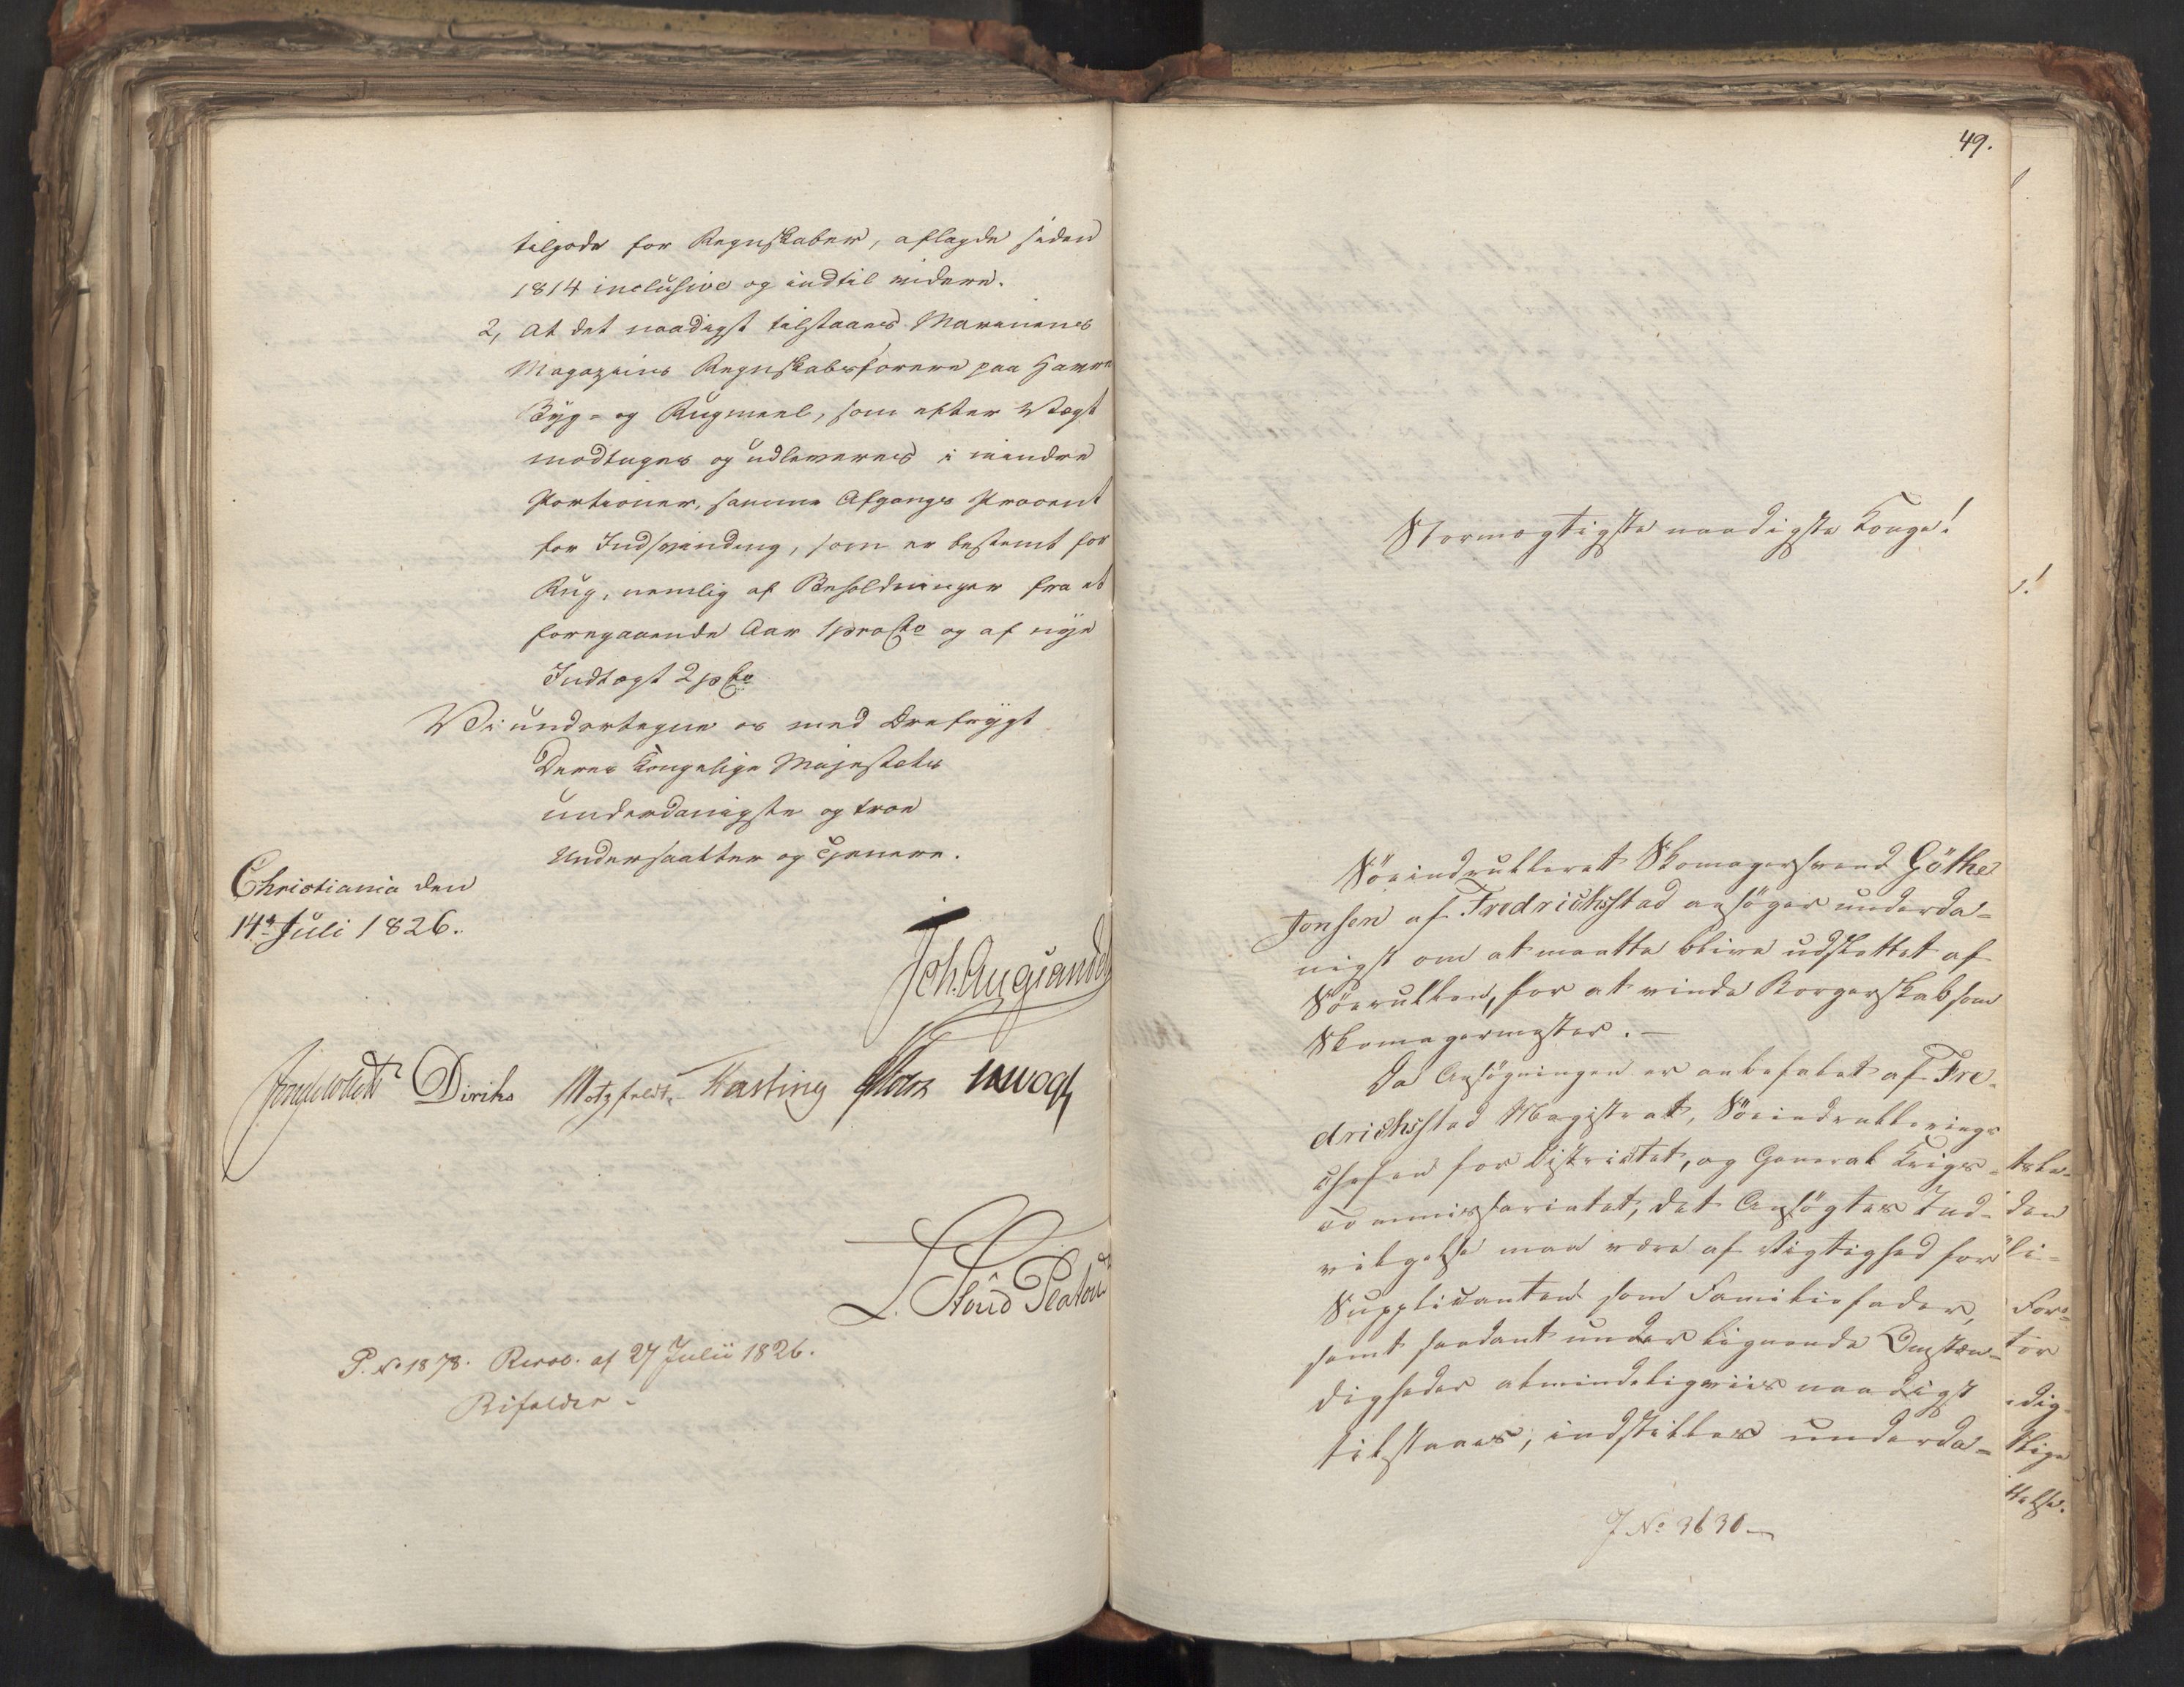 tilgode for Regnskaber, aflagde siden
1814 inclusive og indtil videre.
2, at det naadigst tilstaaes Marinens
Magazins Regnskabsførere paa Havre
Byg- og Rugmeel, som efter Vægt
modtages og udleveres i mindre
Portioner, samme Afgangs Procent
for Indsvinding, som er bestemt for
Rug, nemlig af Beholdninger fra et
foregaaende Aar 1 pro Cto og af nye
Indtægt 2 p Cto
Vi undertegne os med Ærefrygt
Deres Kongelige Majestæts
underdanigste og troe
Undersaatter og Tjenere.
Christiania den
14de Juli 1826.
Joh. Aug Sandels
Jonas Collett Diriks Motzfeldt Fasting Holst JHVogt
L. Stoud Platou
P. No 1878. Resol. af 27 Julii 1826.
Bifaldes.
49.
Stormægtigste naadigste Konge!
Söeindrulleret Skomagersvend Göthe
Jonsen af Fredrichsstad ansöger underda-
nigst om at maatte blive udslettet af
Söerullen, for at vinde Borgerskab som
Skomagermester. -
Da Ansögningen er anbefalet af Fre-
drichsstad Magistrat, Söeindrullerings
Chefen for Districtet, og General Krigs-
commissariatet, det Ansögtes Ind-
vilgelse maa være af Vigtighed for
Supplicanten som Familiefader,
samt saadant under lignende Omstæn-
digheder almindeligviis naadigst
tilstaaes, indstilles underda-
J No 3630
den
li-
For-
tör
dig-